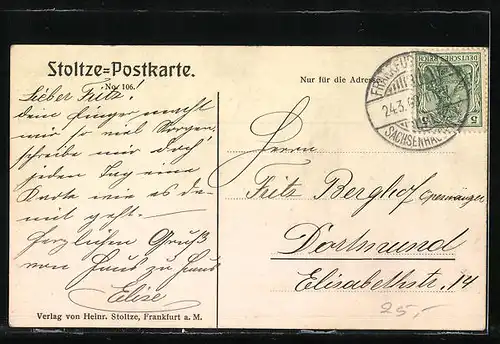 Stoltze=Postkarte.
No. 106.
Nur für die Adresse
FRANKFU
24.3.
SACSENHAU
DEUTSCHES REICH
5
Lieber Fritz!
dein Finger macht
mir so viel Sorgen,
schreibe mir doch
jeden Tag eine
Karte wie es da-
mit geht.
Herzlichen Gruß
von Haus zu Haus
Elise
Herrn
Fritz Berghof Opernsänger
Dortmund
Elisabethstr. 14
25,-
Verlag von Heinr. Stoltze, Frankfurt a. M.